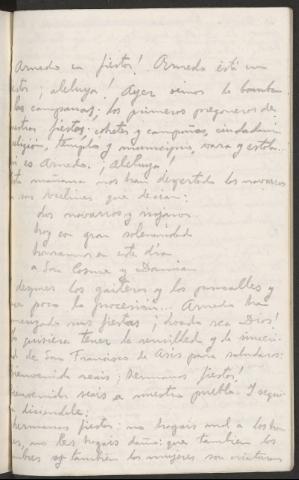 Arnedo en fiestas! Arnedo está en
fiestas; ¡aleluya! Ayer vimos la bomba
las campanas, los primeros pregoneros de
nuestras fiestas: cohetes y campanas, ciudadanía
religión, templo y municipio, vara y estola.
es Arnedo. ¡Aleluya!
Esta mañana nos han despertado los navarros
sus vecinas que decían:
dos navarros y riojanos
hoy con gran solemnidad
honramos en este día
a San Cosme y Damián
después los gaiteros y los
poca la procesión... Arnedo ha
comenzado sus fiestas; ¡loado sea Dios!
quisiera tener la sencillez y la
de San Francisco de Asís para saludaros:
bienvenido seais; hermanas fiestas!
bienvenidas seais a nuestro pueblo. Y seguir
diciéndole:
hermanas fiestas: no hagais mal a los
no les hagais daño: que también los
hombres y también las mujeres son criaturas